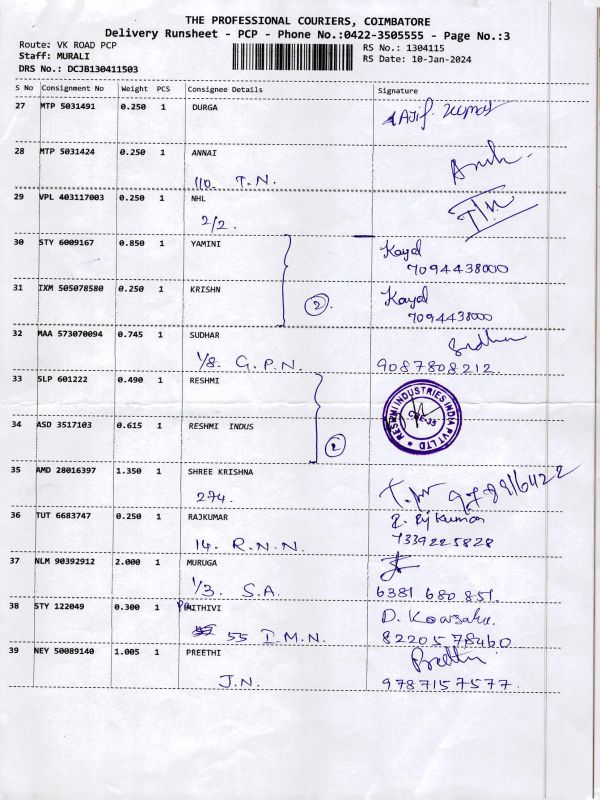 THE PROFESSIONAL COURIERS, COIMBATORE
Delivery Runsheet - PCP - Phone No.:0422-3505555 - Page No.:3
Route: VK ROAD PCP RS No.: 1304115
Staff: MURALI RS Date: 10-Jan-2024
DRS No.: DCJB130411503
S No Consignment No Weight PCS Consignee Details Signature
27 MTP 5031491 0.250 1 DURGA
28 MTP 5031424 0.250 1 ANNAI
110. T.N.
29 VPL 403117003 0.250 1 NHL
2/2.
30 STY 6009167 0.850 1 YAMINI Kayal
7094438000
31 IXM 505078580 0.250 1 KRISHN Kayal
2 7094438000
32 MAA 573070094 0.745 1 SUDHAR
1/8. G.P.N. 9087808212.
33 SLP 601222 0.490 1 RESHMI
RESHMI INDUSTRIES INDIA PVT LTD
34 ASD 3517103 0.615 1 RESHMI INDUS
2
35 AMD 28016397 1.350 1 SHREE KRISHNA
274.
36 TUT 6683747 0.250 1 RAJKUMAR
14. R.N.N. 7339225828
37 NLM 90392912 2.000 1 MURUGA
1/3. S.A. 6381 680 851.
38 STY 122049 0.300 1 PAITHIVI
55 I.M.N. 8220578460
39 NEY 50089140 1.005 1 PREETHI Preethi
J.N. 9787157577.